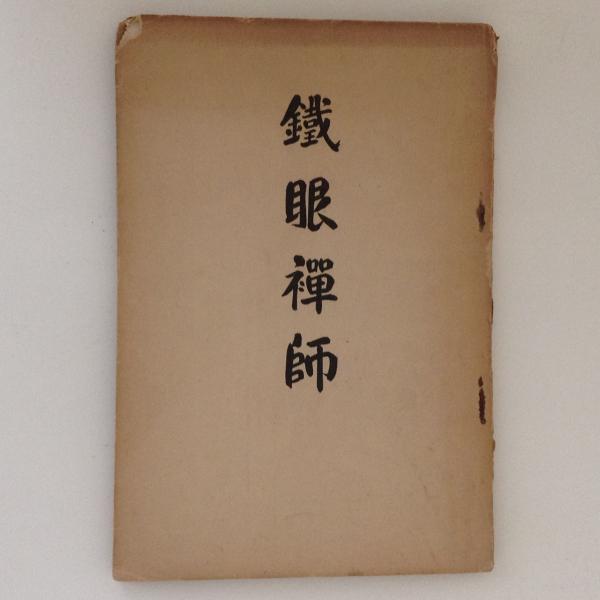 鐵眼禪師